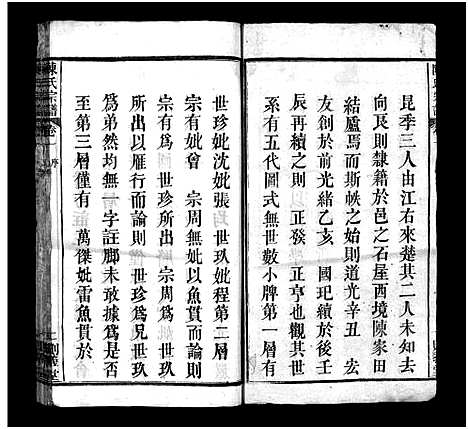 昆季三人由江右來楚其二人未知去
向艮則隸籍於邑之石屋西境陳家田
結廬焉而斯帙之始則道光辛丑 宏
友創於前光緒乙亥 國玘續於後壬
辰再續之則 正發 正亨也觀其世
系有五代圖式無世數小牌第一層有
世珍妣沈妣張 世玖妣程第二層
宗有妣會 宗周無妣以魚貫而論則
宗周為 世珍所出 宗周為 世玖
所出以雁行而論則 世珍為兄世玖
為弟然均無一字註腳未敢據為是否
至第三層僅有 萬傑妣雷魚貫於
陳氏宗譜
卷一 序